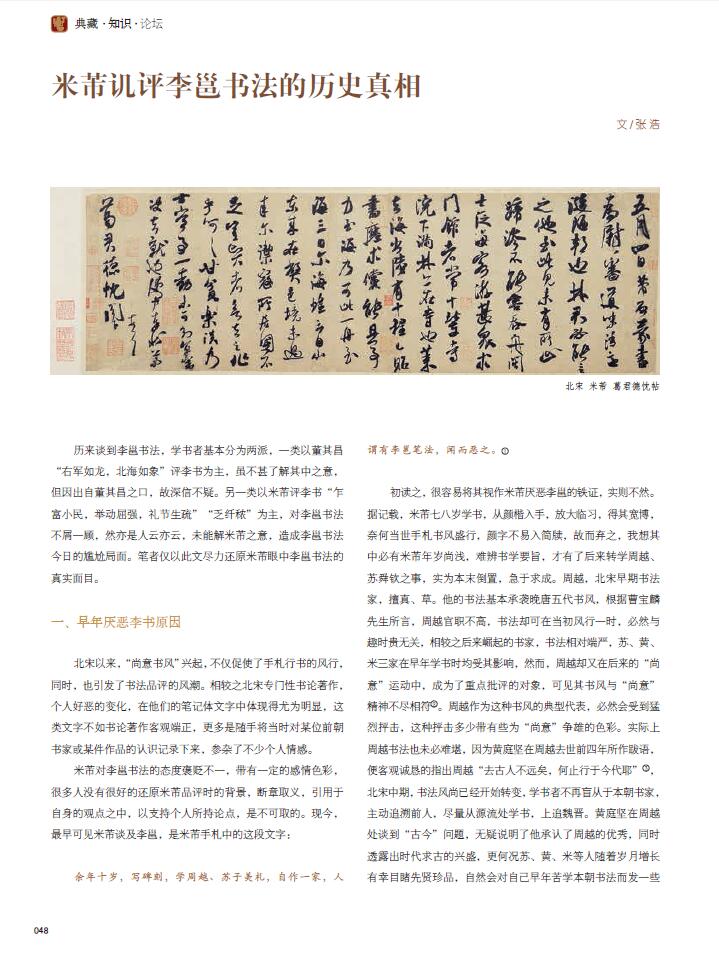 典藏·知识·论坛
米芾讥评李邕书法的历史真相
文/张浩
五月四日芾启蒙书
为慰审道味清适
涟陋邦也林君必能言
之他至此见未有所止
蹄涔不能容吞舟闽
士泛海客游甚众求
门馆者常十辈寺
院下满林一在寺也莱
去海出陆有十程已贴
书应求倘能具事
力至海乃可此一舟至
海三日尔海蝗云自山
东来在弊邑境未过
来尔御寇所居国不
足岂贤者欲去之兆
乎呵呵甘贫乐淡乃
士常事一动未可知宜审
决去就也便中奉状芾
顿首
葛君德忱阁下
北宋 米芾 葛君德忱帖
历来谈到李邕书法，学书者基本分为两派，一类以董其昌
“右军如龙，北海如象”评李书为主，虽不甚了解其中之意，
但因出自董其昌之口，故深信不疑。另一类以米芾评李书“乍
富小民，举动屈强，礼节生疏”“乏纤秾”为主，对李邕书法
不屑一顾，然亦是人云亦云，未能解米芾之意，造成李邕书法
今日的尴尬局面。笔者仅以此文尽力还原米芾眼中李邕书法的
真实面目。
一、早年厌恶李书原因
北宋以来，“尚意书风”兴起，不仅促使了手札行书的风行，
同时，也引发了书法品评的风潮。相较之北宋专门性书论著作，
个人好恶的变化，在他们的笔记体文字中体现得尤为明显，这
类文字不如书论著作客观端正，更多是随手将当时对某位前朝
书家或某件作品的认识记录下来，参杂了不少个人情感。
米芾对李邕书法的态度褒贬不一，带有一定的感情色彩，
很多人没有很好的还原米芾品评时的背景，断章取义，引用于
自身的观点之中，以支持个人所持论点，是不可取的。现今，
最早可见米芾谈及李邕，是米芾手札中的这段文字：
余年十岁，写碑刻，学周越、苏子美札，自作一家，人
谓有李邕笔法，闻而恶之。①
初读之，很容易将其视作米芾厌恶李邕的铁证，实则不然。
据记载，米芾七八岁学书，从颜楷入手，放大临习，得其宽博，
奈何当世手札书风盛行，颜字不易入简牍，故而弃之，我想其
中必有米芾年岁尚浅，难辨书学要旨，才有了后来转学周越、
苏舜钦之事，实为本末倒置，急于求成。周越，北宋早期书法
家，擅真、草。他的书法基本承袭晚唐五代书风，根据曹宝麟
先生所言，周越官职不高，书法却可在当初风行一时，必然与
趣时贵无关，相较之后来崛起的书家，书法相对端严，苏、黄、
米三家在早年学书时均受其影响，然而，周越却又在后来的“尚
意”运动中，成为了重点批评的对象，可见其书风与“尚意”
精神不尽相符②。周越作为这种书风的典型代表，必然会受到猛
烈抨击，这种抨击多少带有些为“尚意”争雄的色彩。实际上
周越书法也未必难堪，因为黄庭坚在周越去世前四年所作跋语，
便客观诚恳的指出周越“去古人不远矣，何止行于今代耶”③，
北宋中期，书法风尚已经开始转变，学书者不再盲从于本朝书家，
主动追溯前人，尽量从源流处学书，上追魏晋。黄庭坚在周越
处谈到“古今”问题，无疑说明了他承认了周越的优秀，同时
透露出时代求古的兴盛，更何况苏、黄、米等人随着岁月增长
有幸目睹先贤珍品，自然会对自己早年苦学本朝书法而发一些
048